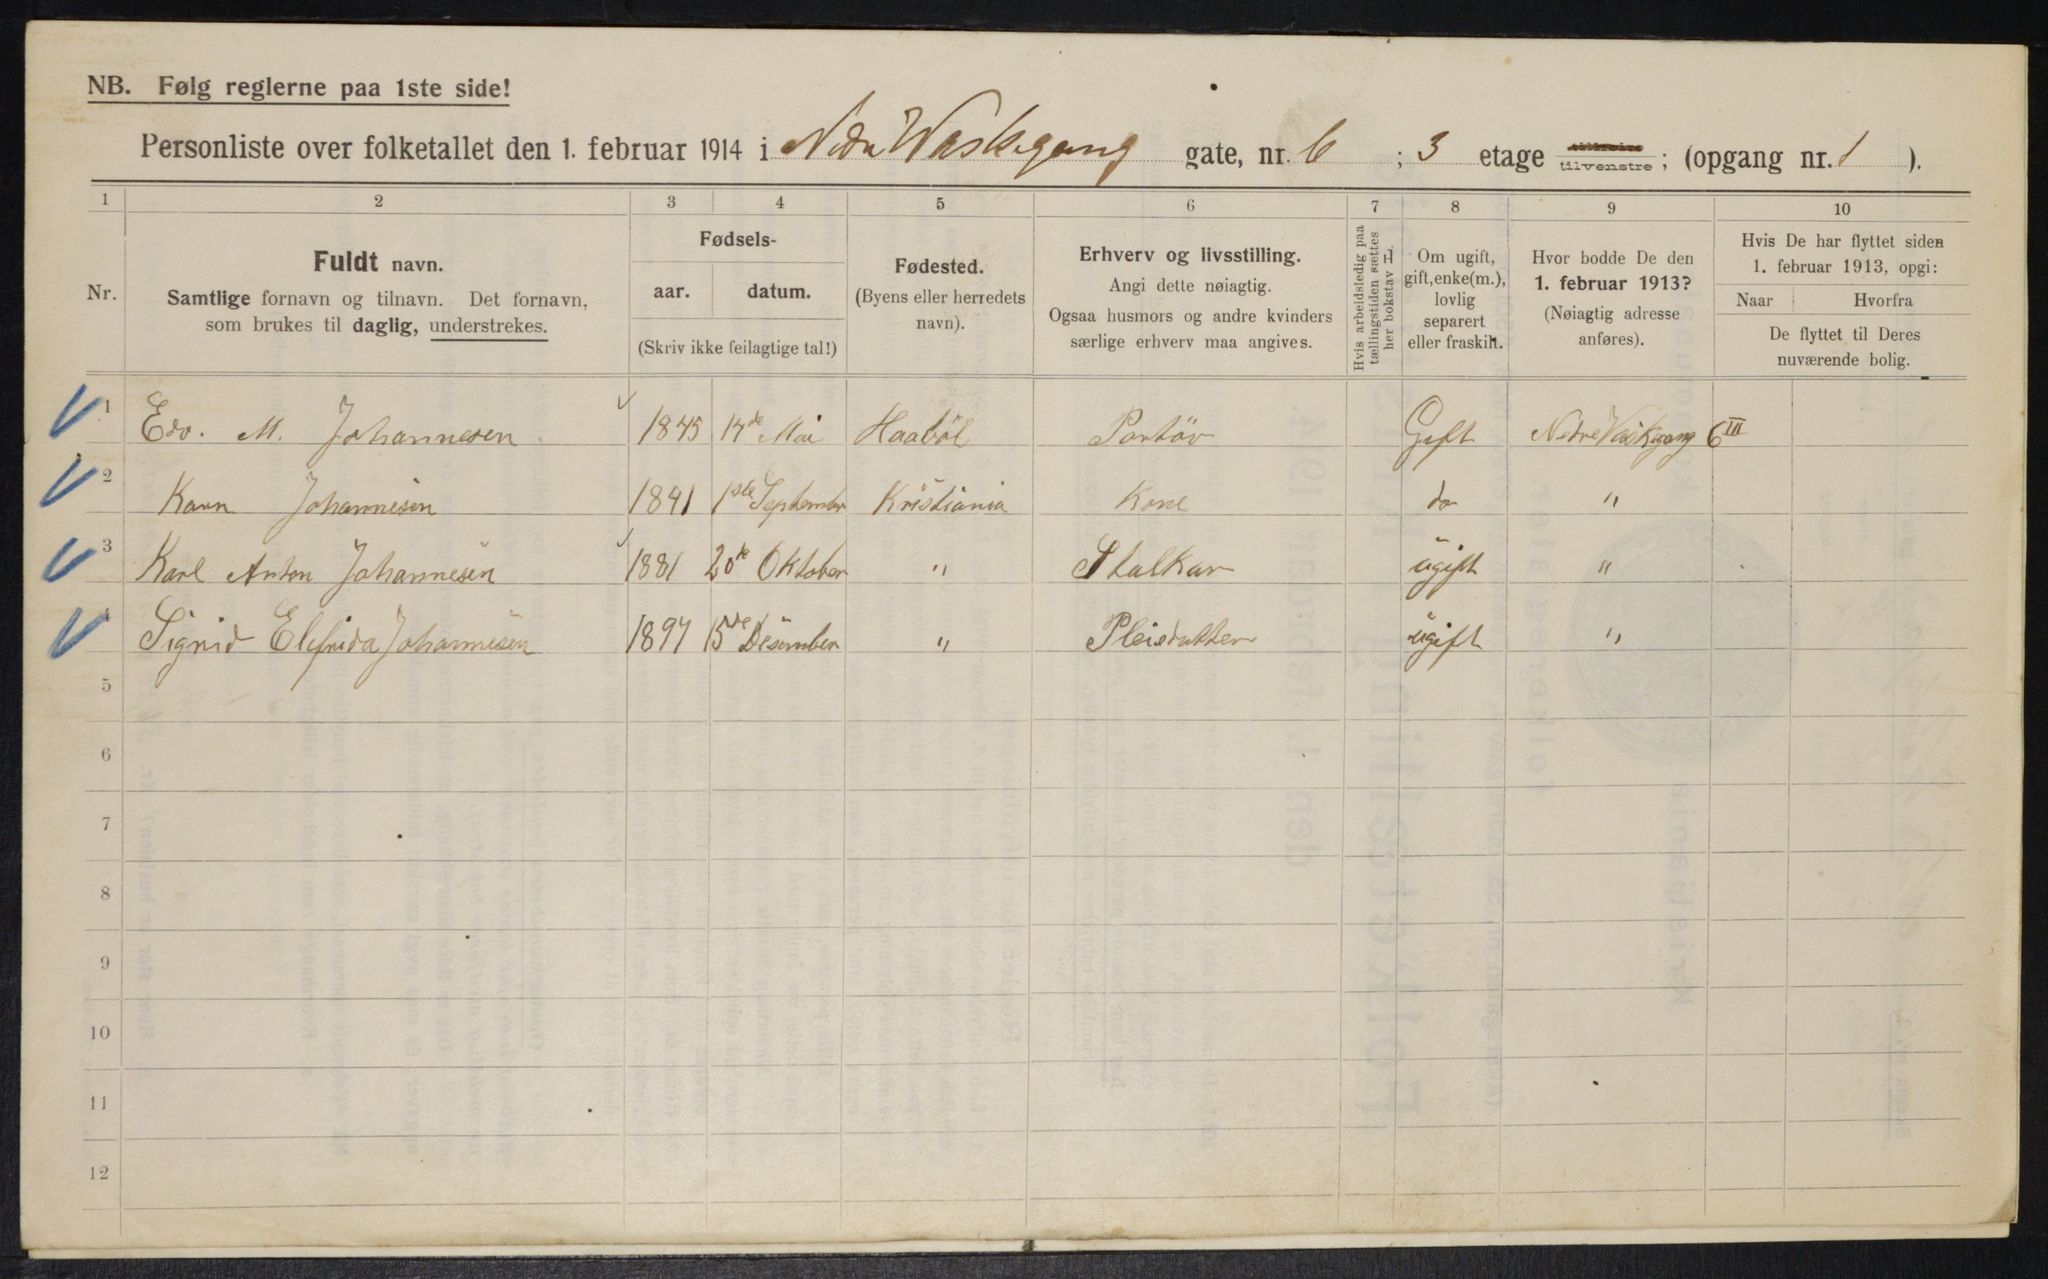 NB. Følg reglerne paa 1ste side!
Personliste over folketallet den 1. februar 1914 i Nedre Vaskegang gate, nr. 6 ; 3 etage tilvenstre; (opgang nr. 1 ).
1 2 3 4 5 6 7 8 9 10
Nr.
Fuldt navn.
Samtlige fornavn og tilnavn. Det fornavn,
som brukes til daglig, understrekes.
Fødsels-
aar. datum.
(Skriv ikke feilagtige tal!)
Fødested.
(Byens eller herredets
navn).
Erhverv og livsstilling.
Angi dette nøiagtig.
Ogsaa husmors og andre kvinders
særlige erhverv maa angives.
Hvis arbeidsledig paa
tællingstiden sættes
her bokstav L.
Om ugift,
gift, enke(m.),
lovlig
separert
eller fraskilt.
Hvor bodde De den
1. februar 1913?
(Nøiagtig adresse
anføres).
Hvis De har flyttet siden
1. februar 1913, opgi:
Naar Hvorfra
De flyttet til Deres
nuværende bolig.
1 Edv. M. Johannesen 1845 14de Mai Haaböl Portör Gift Nedre Vaskgang 6 III
2 Karn Johannesen 1841 1ste September Kristiania Kone do "
3 Karl Anton Johannesen 1881 20de Oktober " Stalkar ugift "
4 Sigrid Elfrida Johannesen 1897 15de Desember " Pleiedatter ugift "
5
6
7
8
9
10
11
12